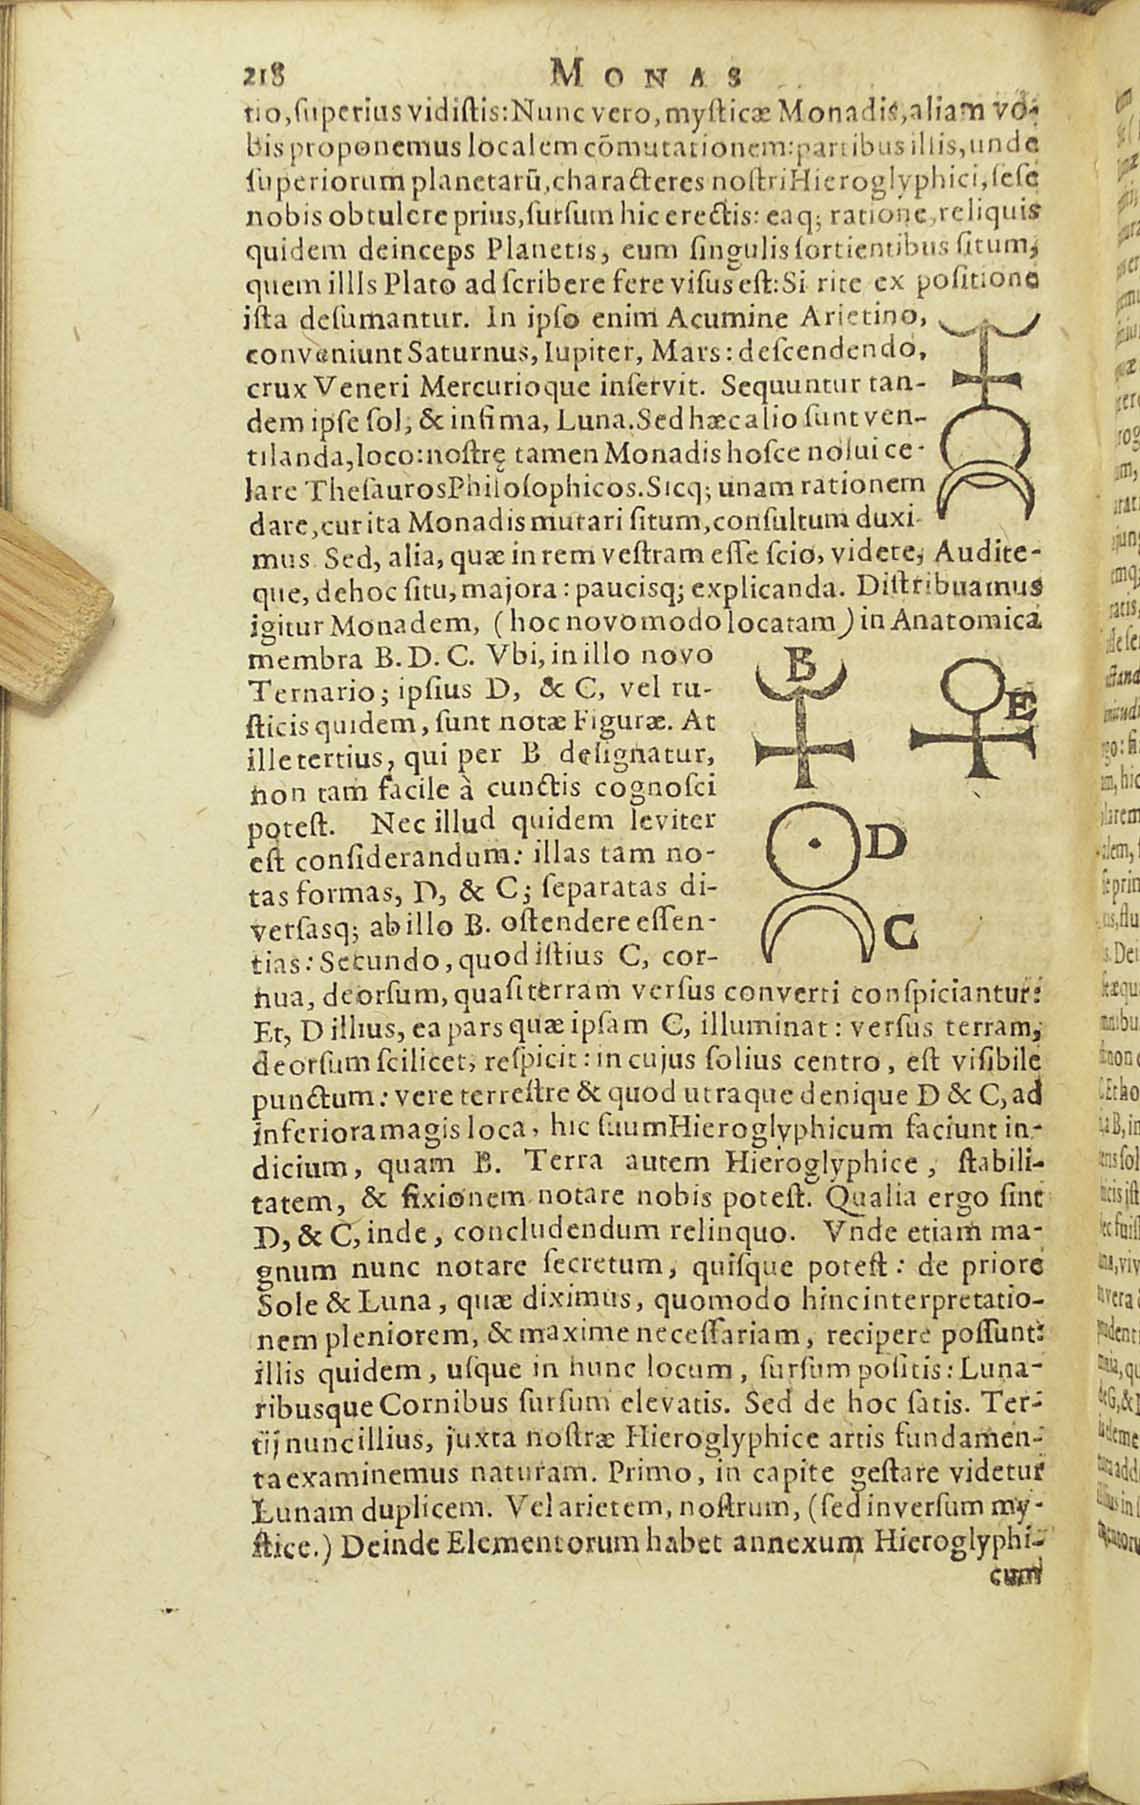 218 MONAS
tio,ſuperius vidiſtis:Nunc vero, myſticæ Monadis, aliam vo-
bis proponemus localem cõmutationem: partibus illis, unde
ſuperiorum planetarũ, characteres noſtri Hieroglyphici, ſeſe
nobis obtulere prius, ſurſum hic erectis: eaq; ratione, reliquis
quidem deinceps Planetis, eum ſingulis ſortientibus ſitum,
quem illIs Plato ad ſcribere fere viſus eſt: Si rite ex poſitione
iſta deſumantur. In ipſo enim Acumine Arietino,
conveniunt Saturnus, Iupiter, Mars: deſcendendo,
crux Veneri Mercurioque inſervit. Sequuntur tan-
dem ipſe ſol, & infima, Luna. Sed hæc alio ſunt ven-
tilanda, loco: noſtrę tamen Monadis hoſce nolui ce-
lare Theſauros Philoſophicos. Sicq; unam rationem
dare, cur ita Monadis mutari ſitum, conſultum duxi-
mus. Sed, alia, quæ in rem veſtram eſſe ſcio, videte, Audite-
que, de hoc ſitu, majora: paucisq; explicanda. Diſtribuamus
igitur Monadem, (hoc novo modo locatam) in Anatomica
membra B. D. C. Vbi, in illo novo
Ternario; ipſius D, & C, vel ru-
ſticis quidem, ſunt notæ Figuræ. At
ille tertius, qui per B deſignatur,
non tam facile à cunctis cognoſci
poteſt. Nec illud quidem leviter
eſt conſiderandum: illas tam no-
tas formas, D, & C; ſeparatas di-
verſasq; ab illo B. oſtendere eſſen-
tias: Secundo, quod iſtius C, cor-
B
E
D
C
nua, deorſum, quaſi terram verſus converti conſpiciantur:
Et, D illius, ea pars quæ ipſam C, illuminat: verſus terram,
deorſum ſcilicet, reſpicit: in cujus ſolius centro, eſt viſibile
punctum: vere terreſtre & quod utraque denique D & C, ad
inferiora magis loca, hic ſuum Hieroglyphicum faciunt in-
dicium, quam B. Terra autem Hieroglyphice, ſtabili-
tatem, & fixionem notare nobis poteſt. Qualia ergo ſint
D, & C, inde, concludendum relinquo. Vnde etiam ma-
gnum nunc notare ſecretum, quiſque poteſt: de priore
Sole & Luna, quæ diximus, quomodo hinc interpretatio-
nem pleniorem, & maxime neceſſariam, recipere poſſunt:
illis quidem, uſque in hunc locum, ſurſum poſitis: Luna-
ribusque Cornibus ſurſum elevatis. Sed de hoc ſatis. Ter-
tij nunc illius, juxta noſtræ Hieroglyphice artis fundamen-
ta examinemus naturam. Primo, in capite geſtare videtur
Lunam duplicem. Vel arietem, noſtrum, (ſed inverſum my-
ſtice.) Deinde Elementorum habet annexum Hieroglyphi-
cum